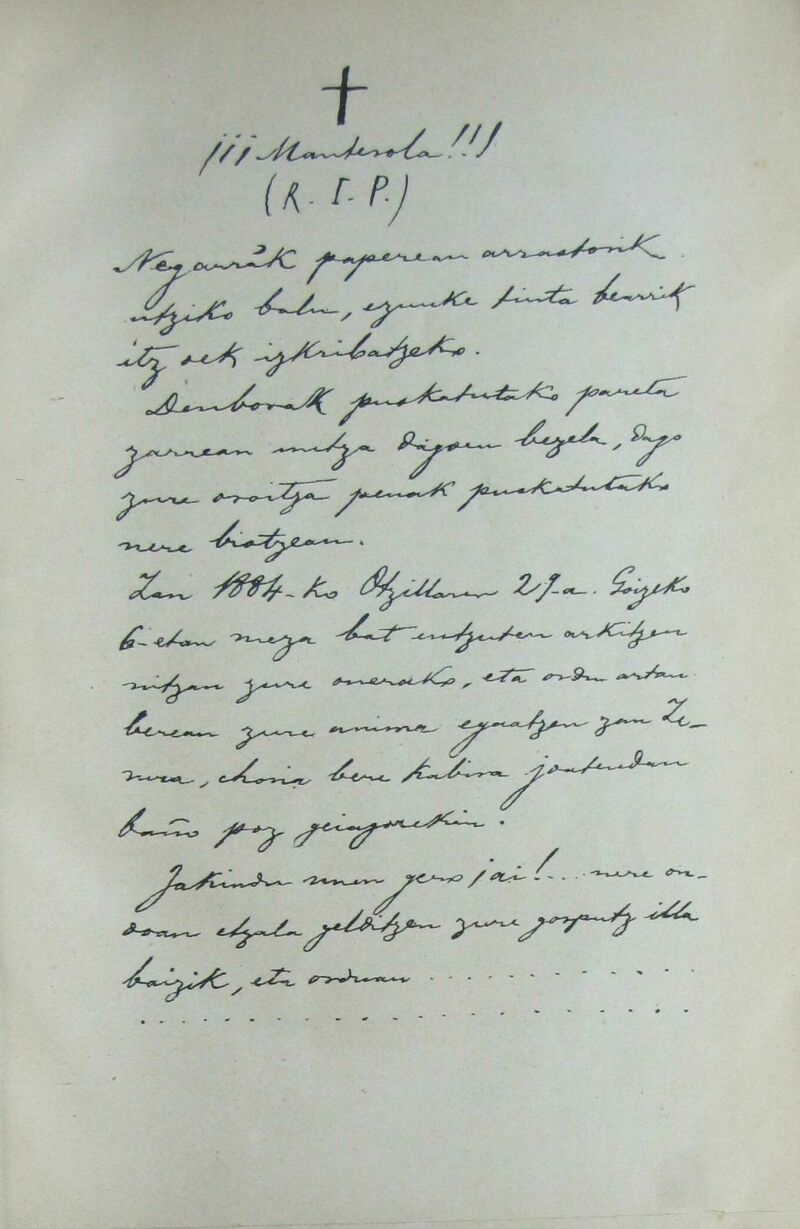 ¡¡¡Manterola!!!
(R. I. P.)
Negarrák paperean arrastorik
utziko balu, ezunke tinta bearrik
itz oek izkribatzeko.
Denborak puskatutako pareta
zarrean untza dágoen bezela, dago
zure oroitza penak puskatutako
nere biotzean.
Zan 1884-ko Otzillaren 29-a. Goizeko
6-etan meza bat entzuten arkitzen
nitzan zure onerako, eta ordu artan
berean zure anima egaatzen zan Ze-
rura, choria bere kabira joatendan
baño poz geiagorekin.
Jakindu nuen gero ¡ai!... nere on-
doan etzala gelditzen zure gorputz illa
baizik, eta orduan . . . . . . . . . .
. . . . . . . . . . . . . . . . . . .